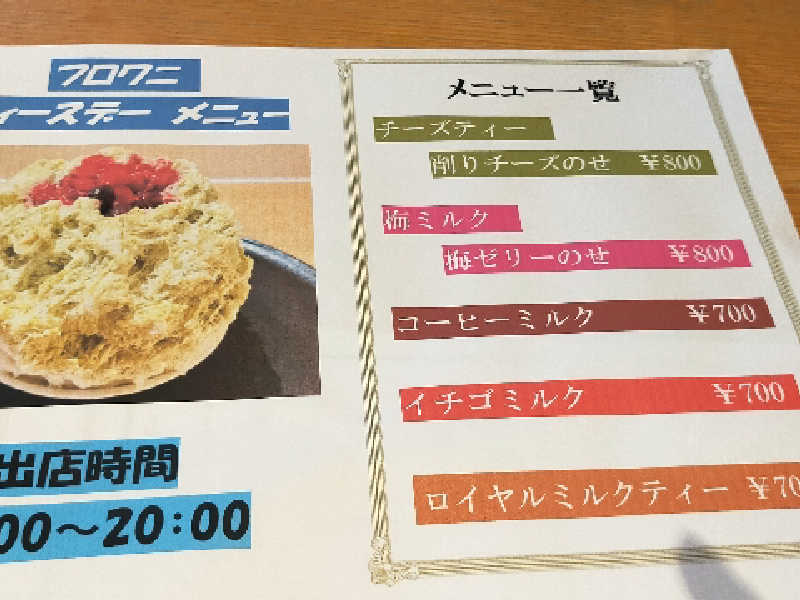 フロワニ
ィースデー メニュー
出店時間
00～20：00
メニュー一覧
チーズティー
削りチーズのせ ￥800
梅ミルク
梅ゼリーのせ ￥800
コーヒーミルク ￥700
イチゴミルク ￥700
ロイヤルミルクティー ￥70